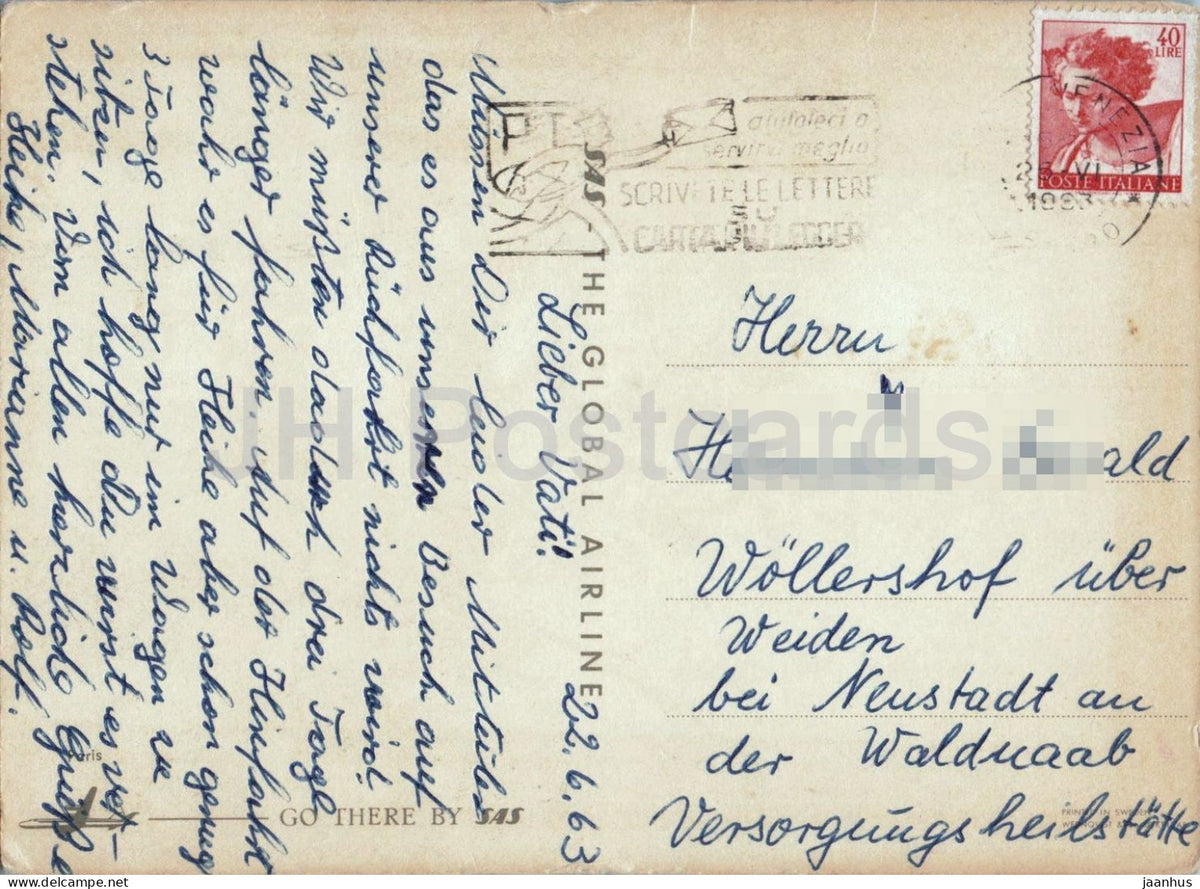 22.6.63
Lieber Vati!
Müssen Dir leider Mitteilen
das es aus unseren Besuch auf
unserer Rückfahrt nichts wird!
Wir müßten dadurch drei Tage
länger fahren. Auf der Hinfahrt
wahr es für Heike aber schon genug
3 Tage lang nur im Wagen zu
sitzen, ich hoffe Du wirst es ver-
stehen. Vom allen herzlich Grüße
Heike, Marianne u. Rolf.
SAS - THE GLOBAL AIRLINE
Paris
GO THERE BY SAS
40
LIRE
POSTE ITALIANE
VENEZIA
VI
aiutateci a
servirvi meglio
SCRIVETE LE LETTERE
SU
Herrn
ald
Wöllershof über
Weiden
bei Neustadt an
der Waldnaab
Versorgungsheilstätte
PRINTED IN SWEDEN
JH Postcards
hipstamp
jaanhus